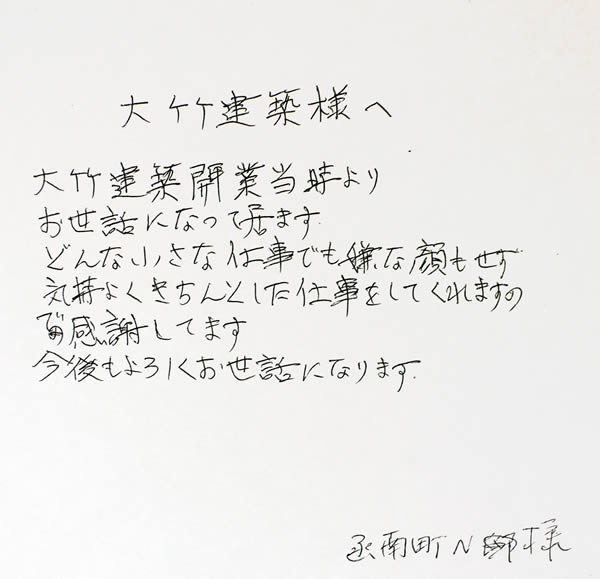 大竹建築様へ
大竹建築開業当時より
お世話になって居ます
どんな小さな仕事でも嫌な顔もせず
気持よくきちんとした仕事をしてくれますの
で感謝してます
今後もよろしくお世話になります.
函南町N 様